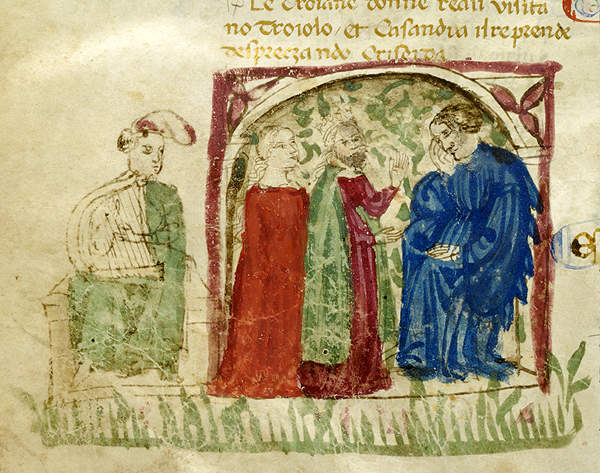 Le troiane donne reali visita
no Troiolo, et Casandra il reprende
despreczando Criseida